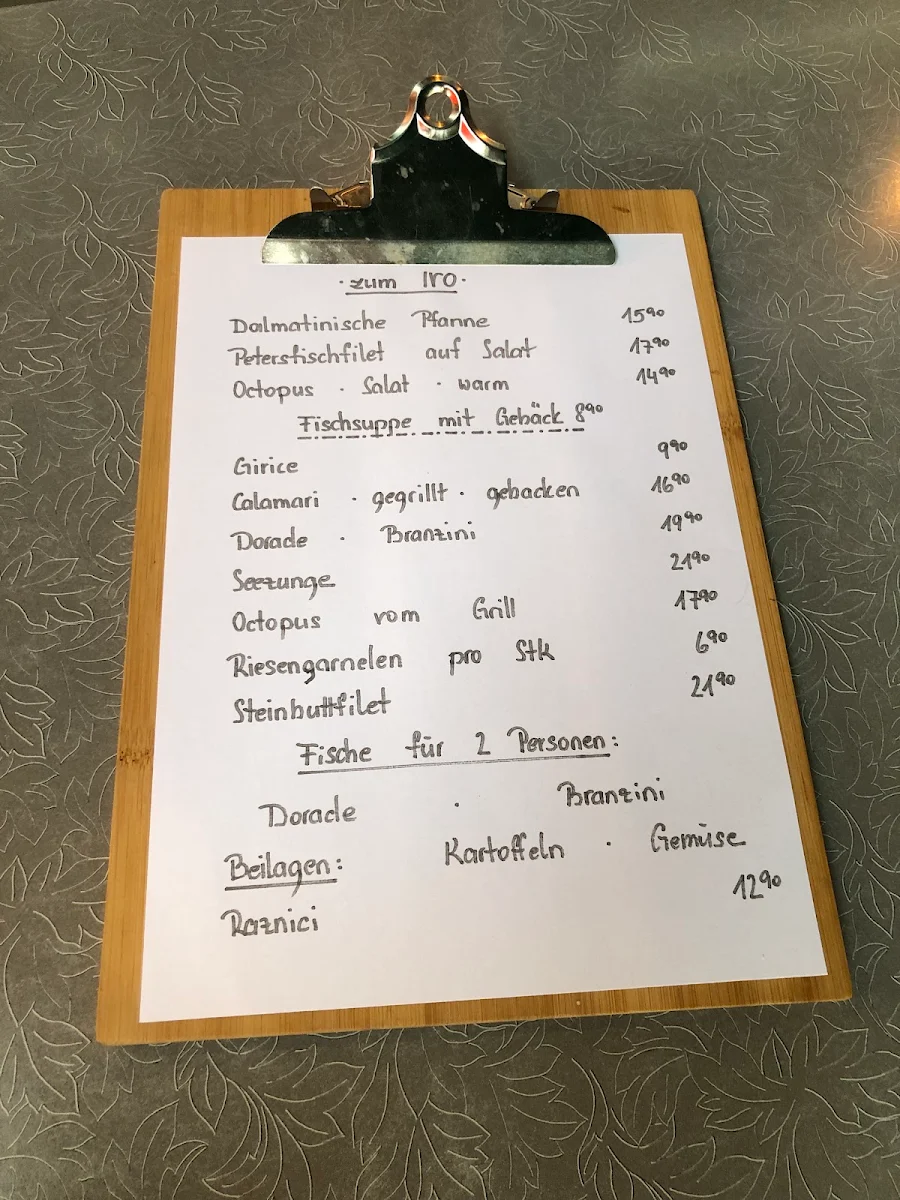 · zum IVO ·
Dalmatinische Pfanne 15⁹⁰
Petersfischfilet auf Salat 17⁹⁰
Octopus · Salat · warm 14⁹⁰
Fischsuppe mit Gebäck 8⁹⁰
Girice 9⁹⁰
Calamari · gegrillt · gebacken 16⁹⁰
Dorade · Branzini 19⁹⁰
Seezunge 21⁹⁰
Octopus vom Grill 17⁹⁰
Riesengarnelen pro Stk 6⁹⁰
Steinbuttfilet 21⁹⁰
Fische für 2 Personen:
Dorade · Branzini
Beilagen: Kartoffeln · Gemüse
Raznici 12⁹⁰